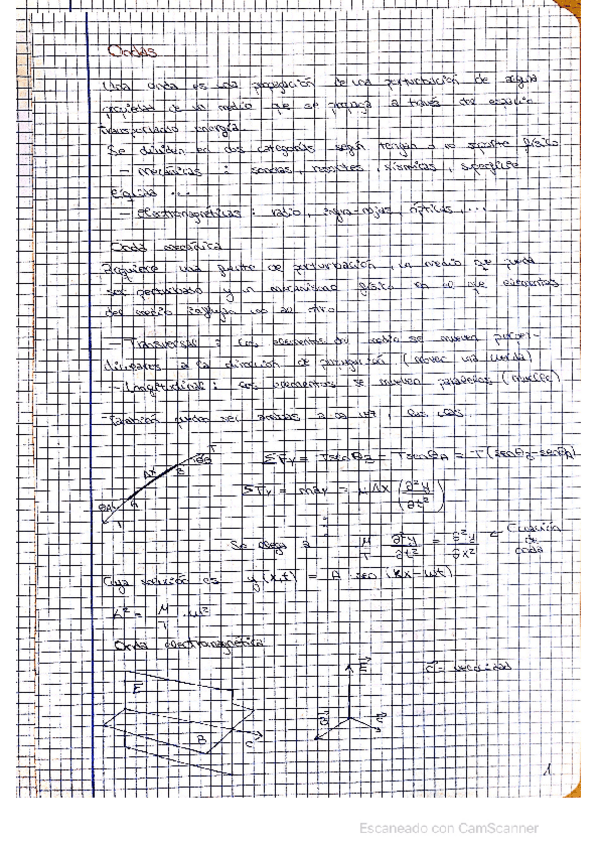 Ondas
Una onda es una propagación de una perturbación de alguna
propiedad de un medio que se propaga a través del espacio
transportando energía.
Se dividen en dos categorías según tengan o no soporte físico
- Mecánicas : sonoras, resortes, sísmicas, superficie
líquida ...
- Electromagnéticas : radio, infra-rojos, ópticas, ...
Onda mecánica
Requiere una fuente de perturbación, un medio que pueda
ser perturbado y un mecanismo físico en el que elementos
del medio influyan uno al otro
- Transversal : Los elementos del medio se mueven perpen-
diculares a la dirección de propagación (mover una cuerda)
- Longitudinal : Los elementos se mueven paralelos (muelle)
También pueden ser ambas a la vez, las olas.
ΣFy = T senθB - T senθA = T (senθB - senθA)
ΣFy = may = μ Δx (∂²y/∂t²)
Se llega a μ/T ∂²y/∂t² = ∂²y/∂x² ← Ecuación de onda
Cuya solución es y(x,t) = A · sen (kx - ωt)
k² = μ/T · ω²
Onda electromagnética
E
B
C
E
B
C
c = velocidad
1
Escaneado con CamScanner